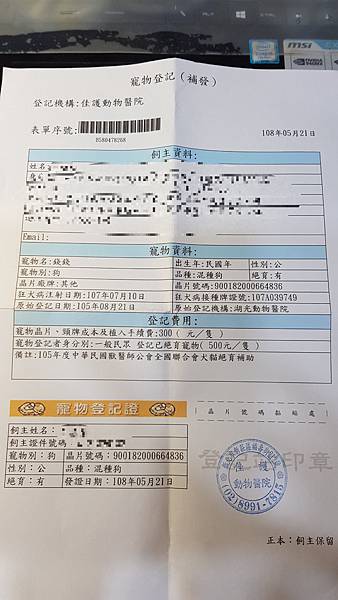 msi
寵物登記(補發)
登記機構:佳護動物醫院
表單序號:
B580478268
108年05月21日
飼主資料:
姓名:
Email:
寵物資料:
寵物名:錢錢 出生年:民國年 性別:公
寵物別:狗 品種:混種狗 絕育:有
晶片廠牌:其他 晶片號碼:900182000664836
狂犬病注射日期:107年07月10日 狂犬病接種牌證號:107A039749
原始登記日期:105年08月21日 原始登記機構:湖光動物醫院
登記費用:
寵物晶片、頸牌成本及植入手續費:300( 元/隻 )
寵物登記者身分別:一般民眾 登記已絕育寵物(500元/隻)
備註:105年度中華民國獸醫師公會全國聯合會犬貓絕育補助
寵物登記證
晶片號碼黏貼處
飼主姓名:
飼主證件號碼:
寵物別:狗 晶片號碼:900182000664836
性別:公 品種:混種狗
絕育:有 發證日期:108年05月21日
佳護
動物醫院
(02)8991-7816
正本:飼主保留